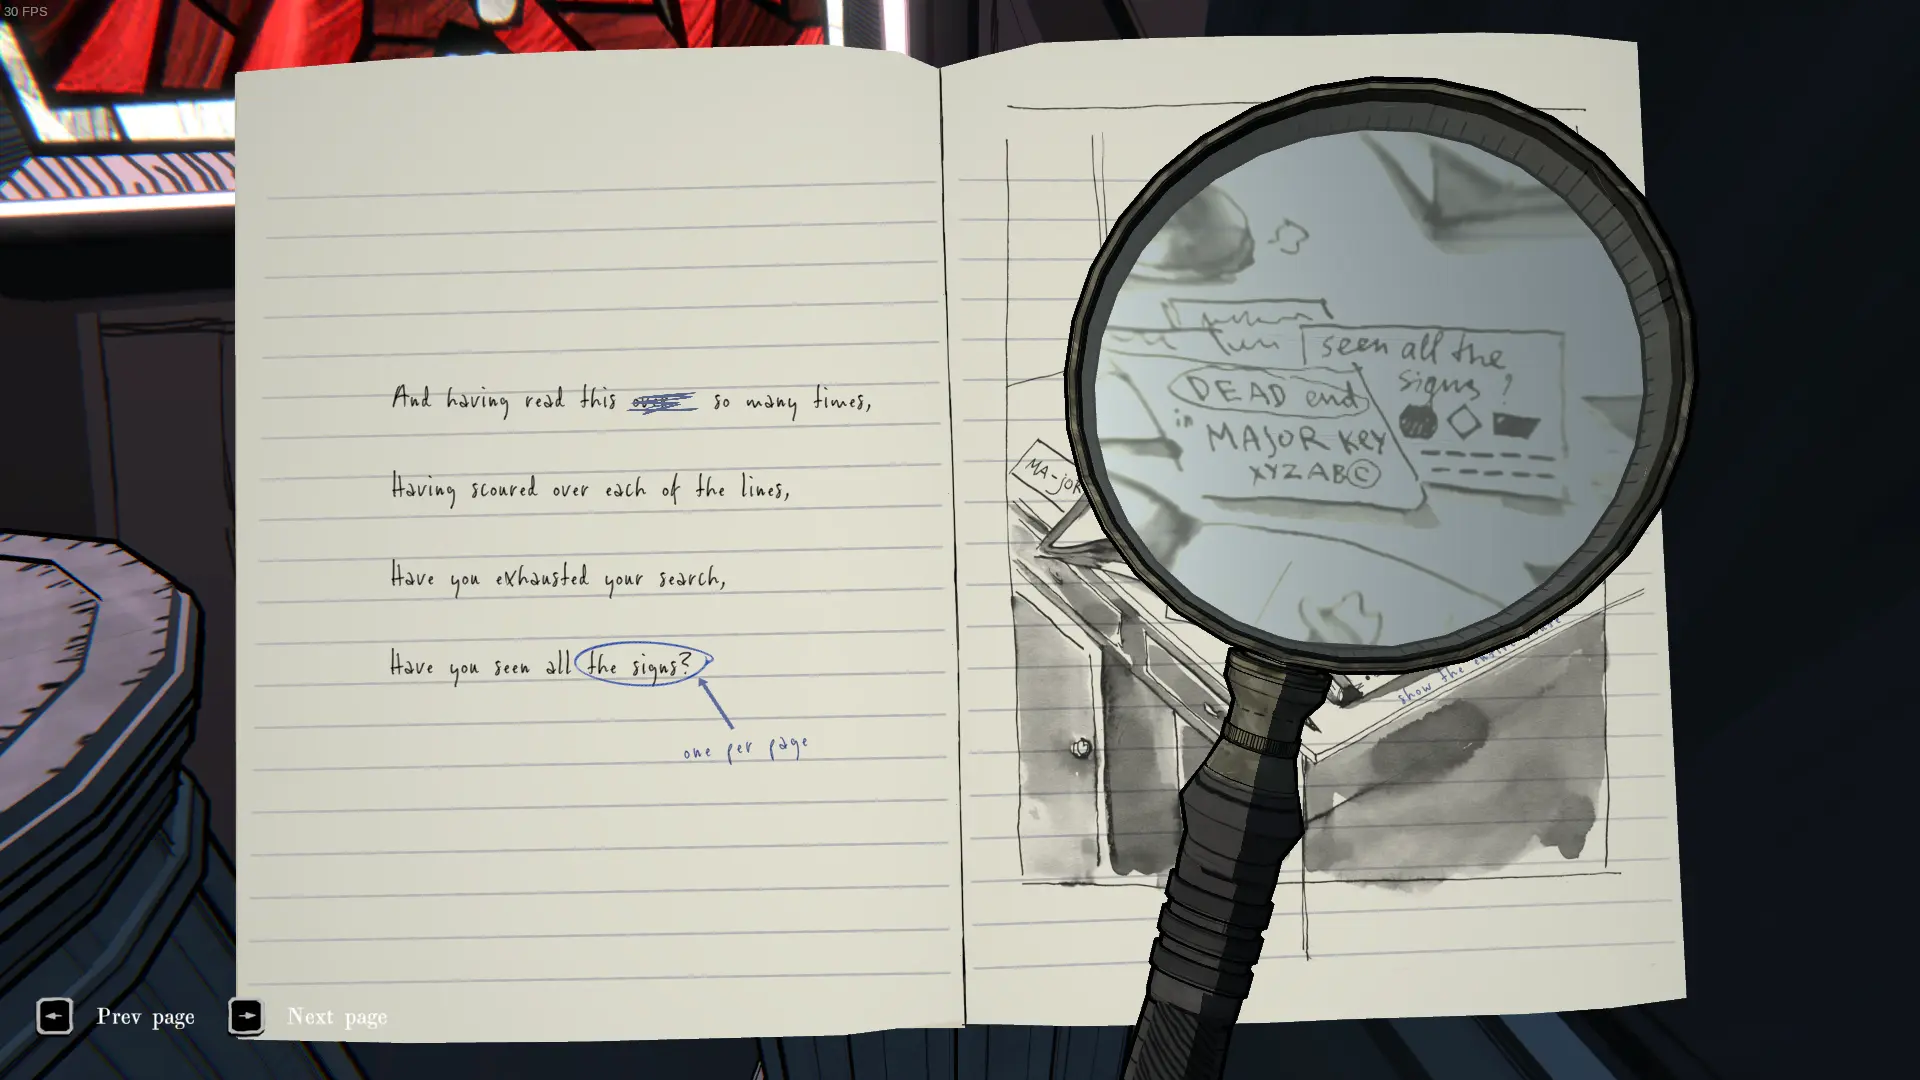 30 FPS
And having read this so many times,
Having scoured over each of the lines,
Have you exhausted your search,
Have you seen all the signs?
one per page
seen all the
signs?
DEAD end
in MAJOR KEY
XYZABC
MA-JOR
show the
Prev page
Next page